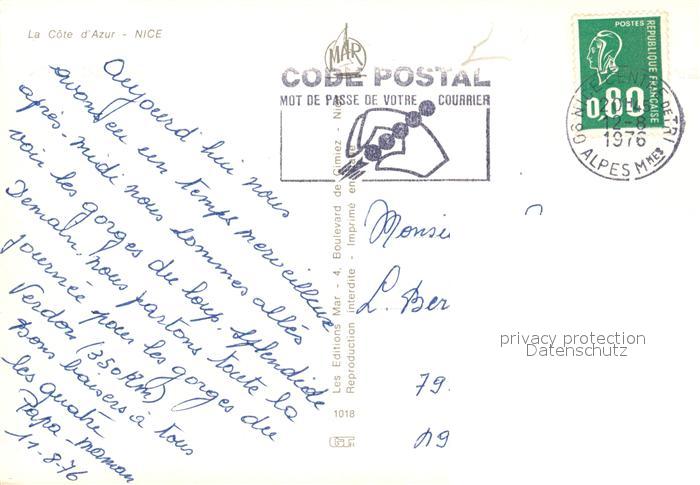 La Côte d'Azur - NICE
Aujourd'hui nous
avons eu un temps merveilleux
après-midi nous sommes allés
voir les gorges du loup, splendide
Demain, nous partons toute la
journée pour les gorges du
Verdon (350 km)
bons baisers à tous
les quatre
Papa - maman
11-8-76
MAR
CODE POSTAL
MOT DE PASSE DE VOTRE COURRIER
Les Editions Mar - 4, Boulevard de Cimiez - Nice
Reproduction Interdite - Imprimé en
1018
POSTES
REPUBLIQUE FRANÇAISE
0,80
NICE CENTRE DE TRI
12-8
1976
06 ALPES MMES
Monsi
L. Ber
79.
privacy protection
Datenschutz